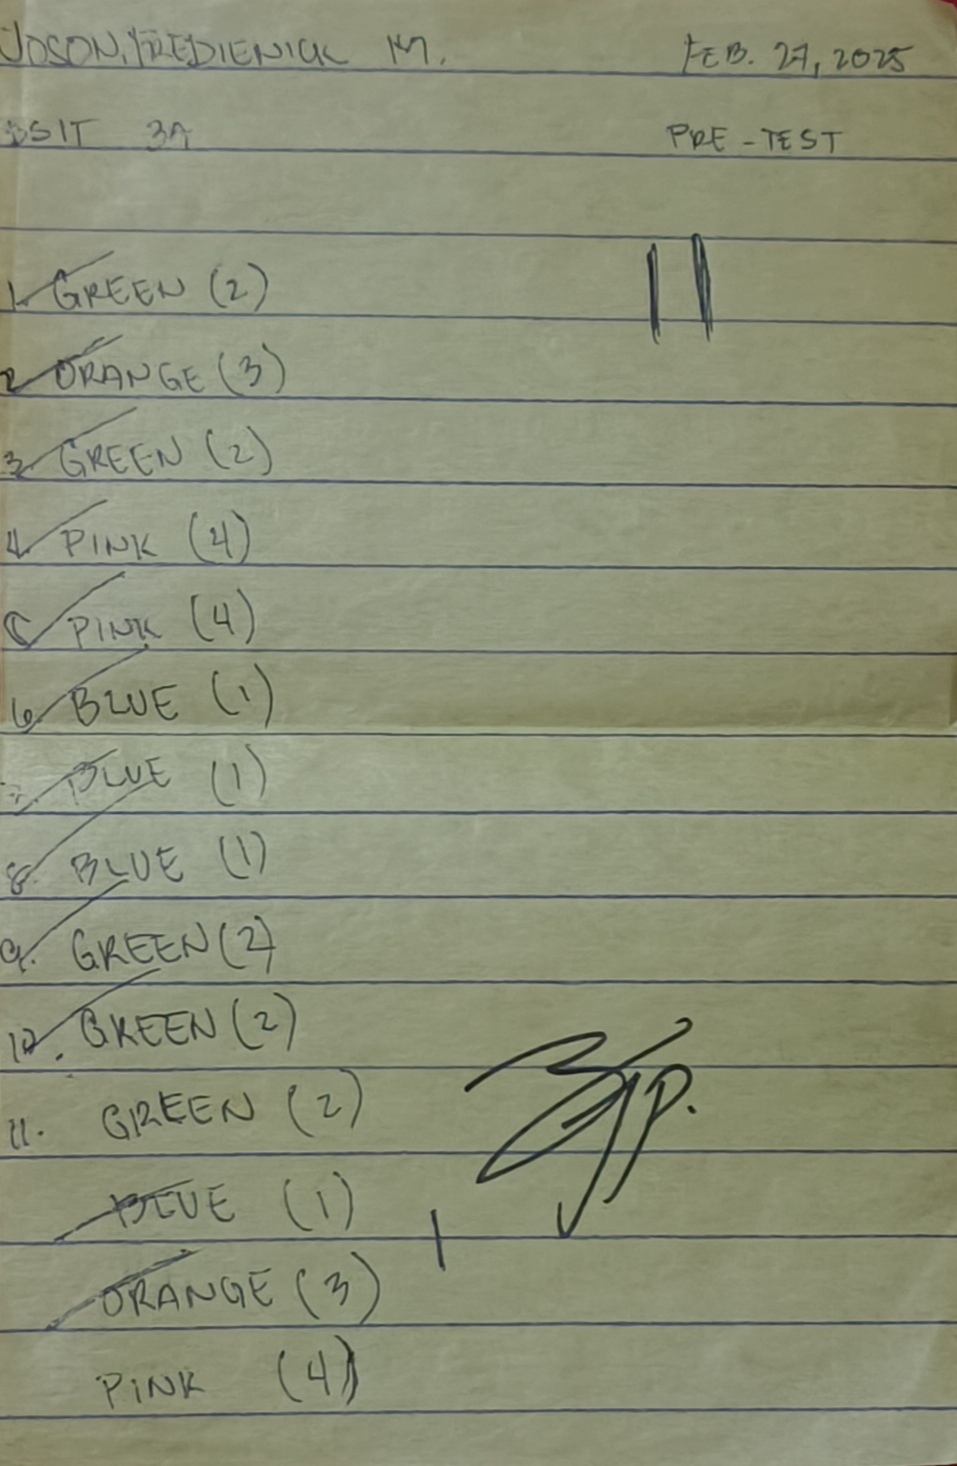 JOSON, FREDIENICK M. FEB. 27, 2025
BSIT 3A PRE-TEST
11
1. GREEN (2)
2. ORANGE (3)
3. GREEN (2)
4. PINK (4)
5. PINK (4)
6. BLUE (1)
7. BLUE (1)
8. BLUE (1)
9. GREEN (2)
10. GREEN (2)
11. GREEN (2)
BLUE (1) 1
ORANGE (3)
PINK (4)